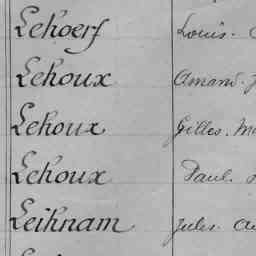 Lehoerf Louis.
Lehoux Amand.
Lehoux Gilles.
Lehoux Paul.
Leihnam Jules.